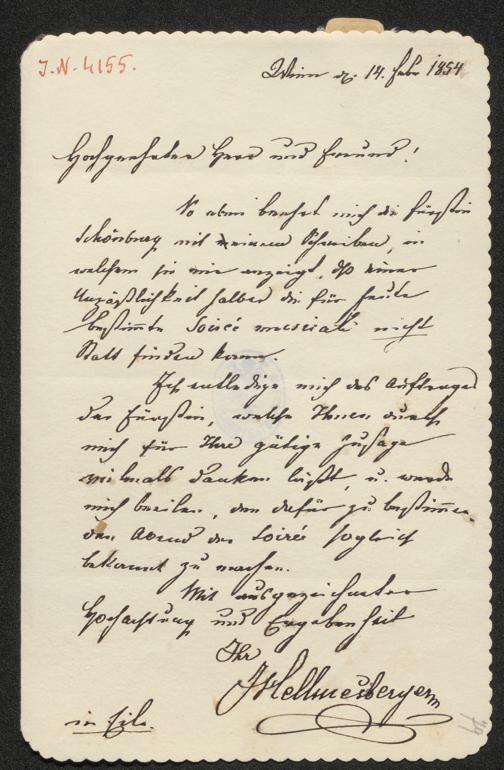 J.N. 4155.
Wien d. 14. Febr 1854
Hochgeehrter Herr und Freund!
So eben beehrt mich die Fürstin
Schönburg mit einem Schreiben, in
welchem sie mir anzeigt, daß einer
Unpäßlichkeit halber die für heute
bestimmte Soirée musicale nicht
Statt finden kann.
Ich entledige mich des Auftrages
der Fürstin, welche Ihnen durch
mich für Ihre gütige Zusage
vielmals danken läßt, u. werde
mich beeilen, den dafür zu bestimmen
den Abend der Soirée sogleich
bekannt zu machen.
Mit ausgezeichneter
Hochachtung und Ergebenheit
Ihr
JHellmesberger
in Eile.